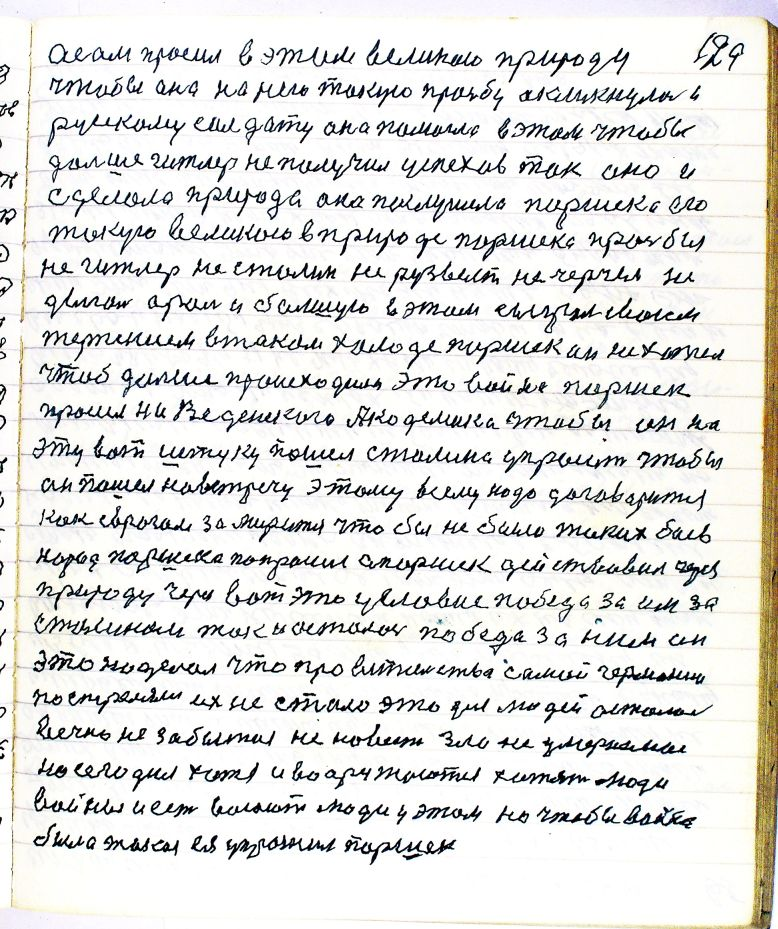 асам просил в этом великою природу 129
чтобы она на него такую прозьбу окликнулася и
рускому солдату она помогла в этом чтобы
дальше гитлер не получил успехов так оно и
сделола природа она послушела паршека его
такую великою в природе паршека прозьбы
не гитлер не сталин не рузвельт не черчел не
делгол а в этом сыграл своем
терпением в таком холоде паршек он не хотел
чтоб дальше происходила это война паршек
просил Ни Веденского Академика чтобы он на
эту вот штуку пошел сталина упросит чтобы
он пошел навстречу этому всему надо договарится
как сврагам замирится что бы не было таких боев
народ паршека попросил а паршек действовал через
природу через вот это условие победа за им за
сталином так и осталася победа за ним он
это наделал что провительства самой германии
постреляли их не стало это для людей осталося
вечно не забытая не новесть зло не умераемое
на сегодня хотя и воаружаются хотят люди
войны и есть воюют люди у этом но чтобы война
была такая ея упразнил паршек